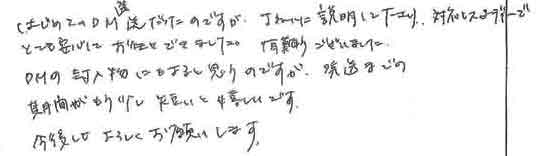 はじめてのDM発送だったのですが、ていねいに説明して下さり、対応もスムーズで
とても安心しておまかせできました。有難うございました。
DMの封入物にもよると思うのですが、発送までの
期間がもう少し短いと嬉しいです。
今後ともよろしくお願いします。